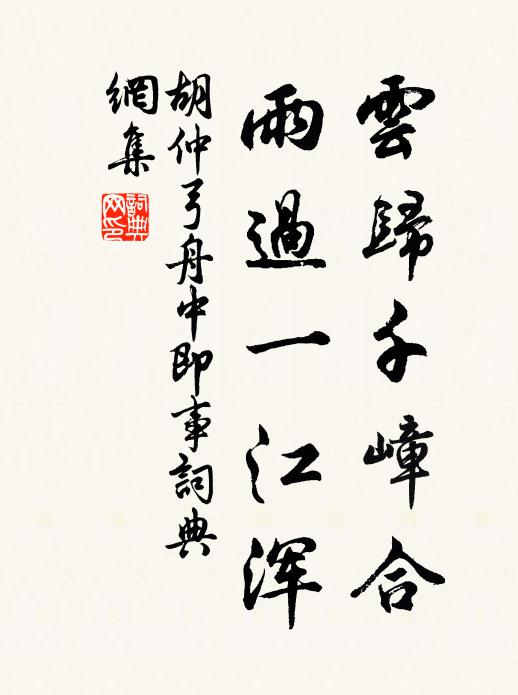 雲歸千嶂合
雨過一江浑
胡仲弓舟中即事詞典
網集
詞典
网印